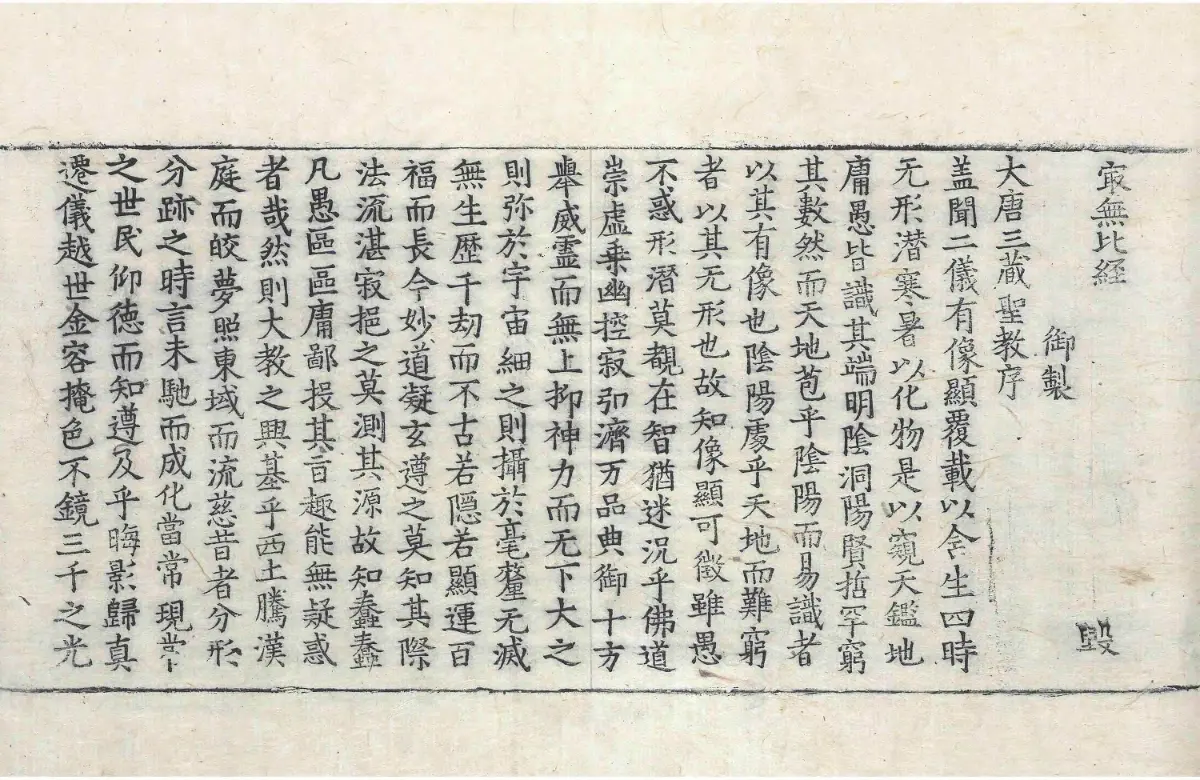 㝡無比経 毀
御製
大唐三藏聖教序
盖聞二儀有像顯覆載以含生四時
无形潜寒暑以化物是以窺天鑑地
庸愚皆識其端明陰洞陽賢哲罕窮
其數然而天地苞乎陰陽而易識者
以其有像也陰陽處乎天地而難窮
者以其无形也故知像顯可徵雖愚
不惑形潛莫覩在智猶迷况乎佛道
崇虛乗幽控寂弘濟万品典御十方
舉威靈而無上抑神力而无下大之
則弥於宇宙細之則攝於毫釐无滅
無生歷千劫而不古若隱若顯運百
福而長今妙道凝玄遵之莫知其際
法流湛寂挹之莫測其源故知蠢蠢
凡愚區區庸鄙投其旨趣能無疑惑
者哉然則大教之興基乎西土騰漢
庭而皎夢照東域而流慈昔者分形
分跡之時言未馳而成化當常現常
之世民仰徳而知遵及乎晦影歸真
遷儀越世金容掩色不鏡三千之光